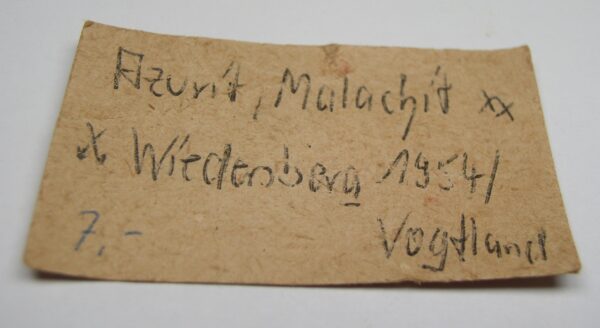 Azurit, Malachit xx
⚒ Wiedersberg 1954/
Vogtland
7,-